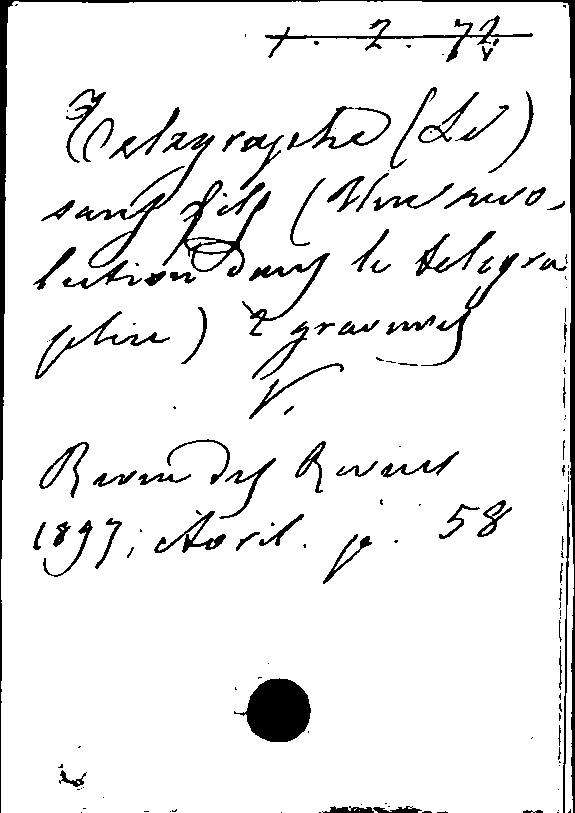 1. 2. 72
Telegraphe (Le)
sans fils (Une revo-
lution dans la telegra
phie) 2 gravures
V.
Revue des Revues
1897, Avril. p. 58